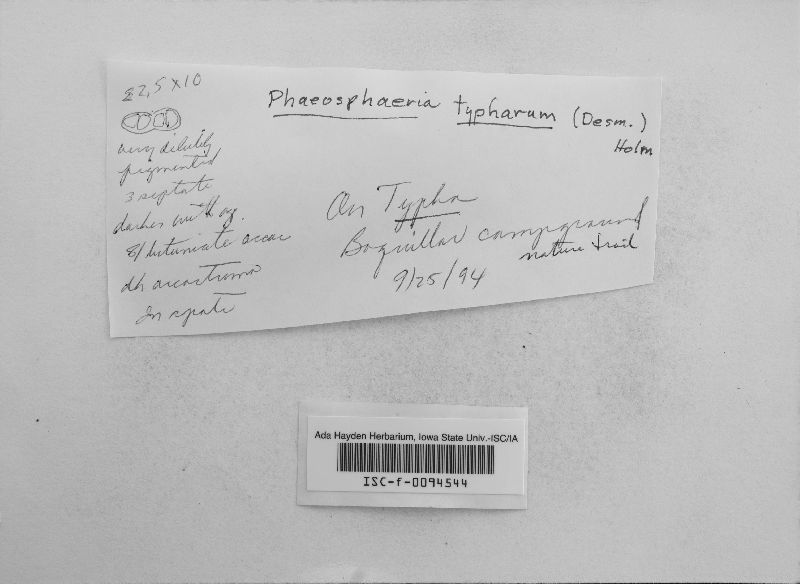 22,5 x 10
very dilutely
pigmented
3 septate
darker with age.
8/bitunicate ascus
dk ascostroma
In spots
Phaeosphaeria typharum (Desm.)
Holm
On Typha
Boquillas campground
nature trail
9/25/94
Ada Hayden Herbarium, Iowa State Univ.-ISC/IA
ISC-f-0094544